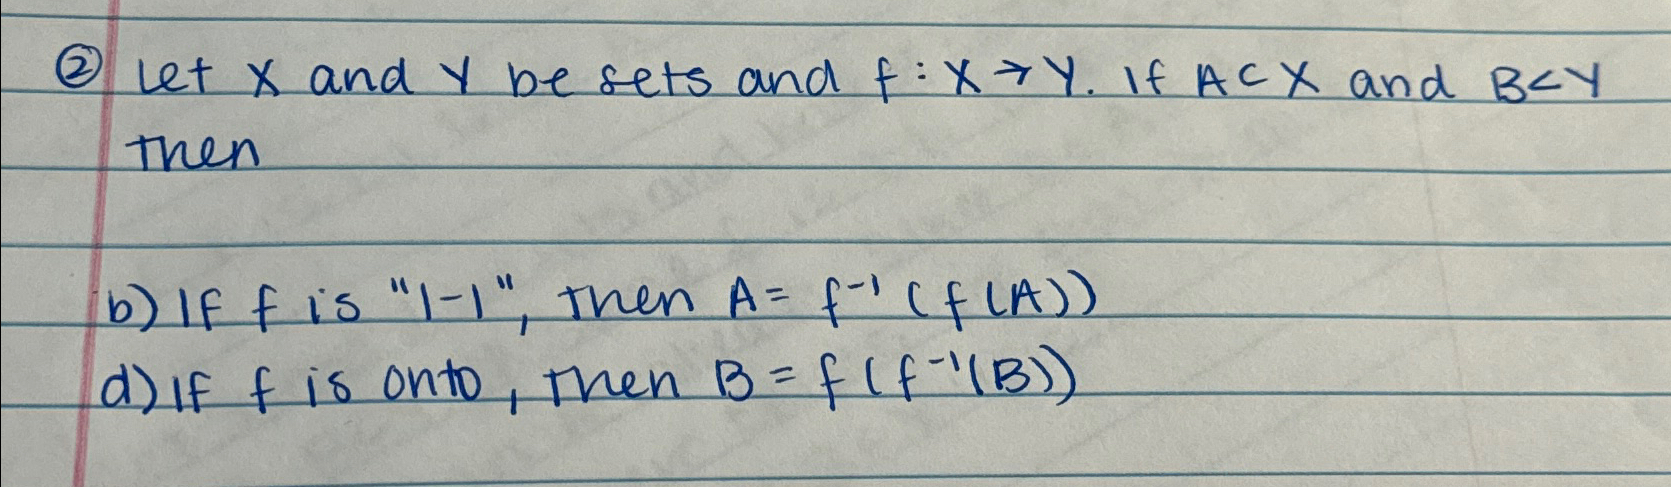 ② Let X and Y be sets and f: X → Y. If A ⊂ X and B ⊂ Y
then
b) If f is "1-1", then A = f⁻¹(f(A))
d) If f is onto, then B = f(f⁻¹(B))